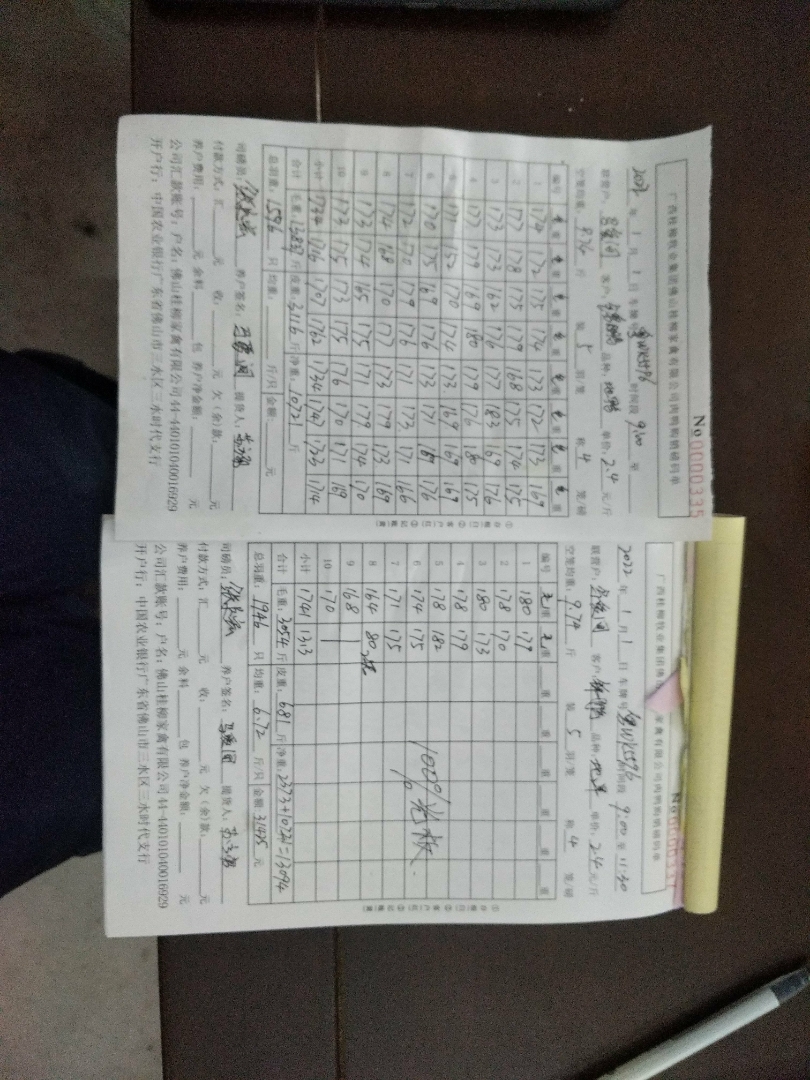 广西桂柳牧业集团佛山桂柳家禽有限公司肉鸭购销磅码单
No 0000335
2022 年 1 月 1 日 车牌号 时间段 9:00 至
联营户: 客户: 品种: 单价: 2.4 元/斤
空笼均重: 9.74 斤 装 5 羽/笼 称 4 笼/磅
编号 毛重 毛重 毛重 毛重 毛重 毛重 毛重 毛重
1 174 172 175 174 173 172 173 169
2 177 178 175 179 168 175 174 175
3 173 173 162 176 177 183 169 176
4 177 179 169 180 179 176 180 175
5 171 152 170 174 173 169 169 169
6 170 175 169 176 173 171 169 176
7 172 170 179 176 171 173 171 166
8 174 168 170 177 173 179 173 169
9 173 174 165 175 171 179 174 170
10 173 175 173 175 176 170 171 169
小计 1734 1716 1707 1762 1734 1747 1723 1714
合计 毛重: 13837 斤 皮重: 3116 斤 净重: 10721 斤
总羽重: 1596 只 均重: 斤/只 金额: 元
司磅员: 养户签名: 提货人:
付款方式: 汇 元 收: 元 欠(余)款: 元
养户费用: 元 余料 包 养户净金额: 元
公司汇款账号: 户名: 佛山桂柳家禽有限公司 44-440101040016929
开户行: 中国农业银行广东省佛山市三水区三水时代支行
广西桂柳牧业集团佛 家禽有限公司肉鸭购销磅码单
No 0000337
2022 年 1 月 1 日 车牌号 时间段 9:00 至 11:30
联营户: 客户: 品种: 单价: 2.4 元/斤
空笼均重: 9.74 斤 装 5 羽/笼 称 4 笼/磅
编号 毛重 毛重 重 重 重 重 重 重
1 180 177
2 178 170
3 180 173
4 178 179
5 178 182
6 174 175
7 171 175
8 164 80
9 168
10 170
小计 1741 1313
100%
合计 毛重: 3054 斤 皮重: 681 斤 净重: 2373+10721=13094
总羽重: 1946 只 均重: 6.72 斤/只 金额: 31425 元
司磅员: 养户签名: 提货人:
付款方式: 汇 元 收: 元 欠(余)款: 元
养户费用: 元 余料 包 养户净金额: 元
公司汇款账号: 户名: 佛山桂柳家禽有限公司 44-440101040016929
开户行: 中国农业银行广东省佛山市三水区三水时代支行